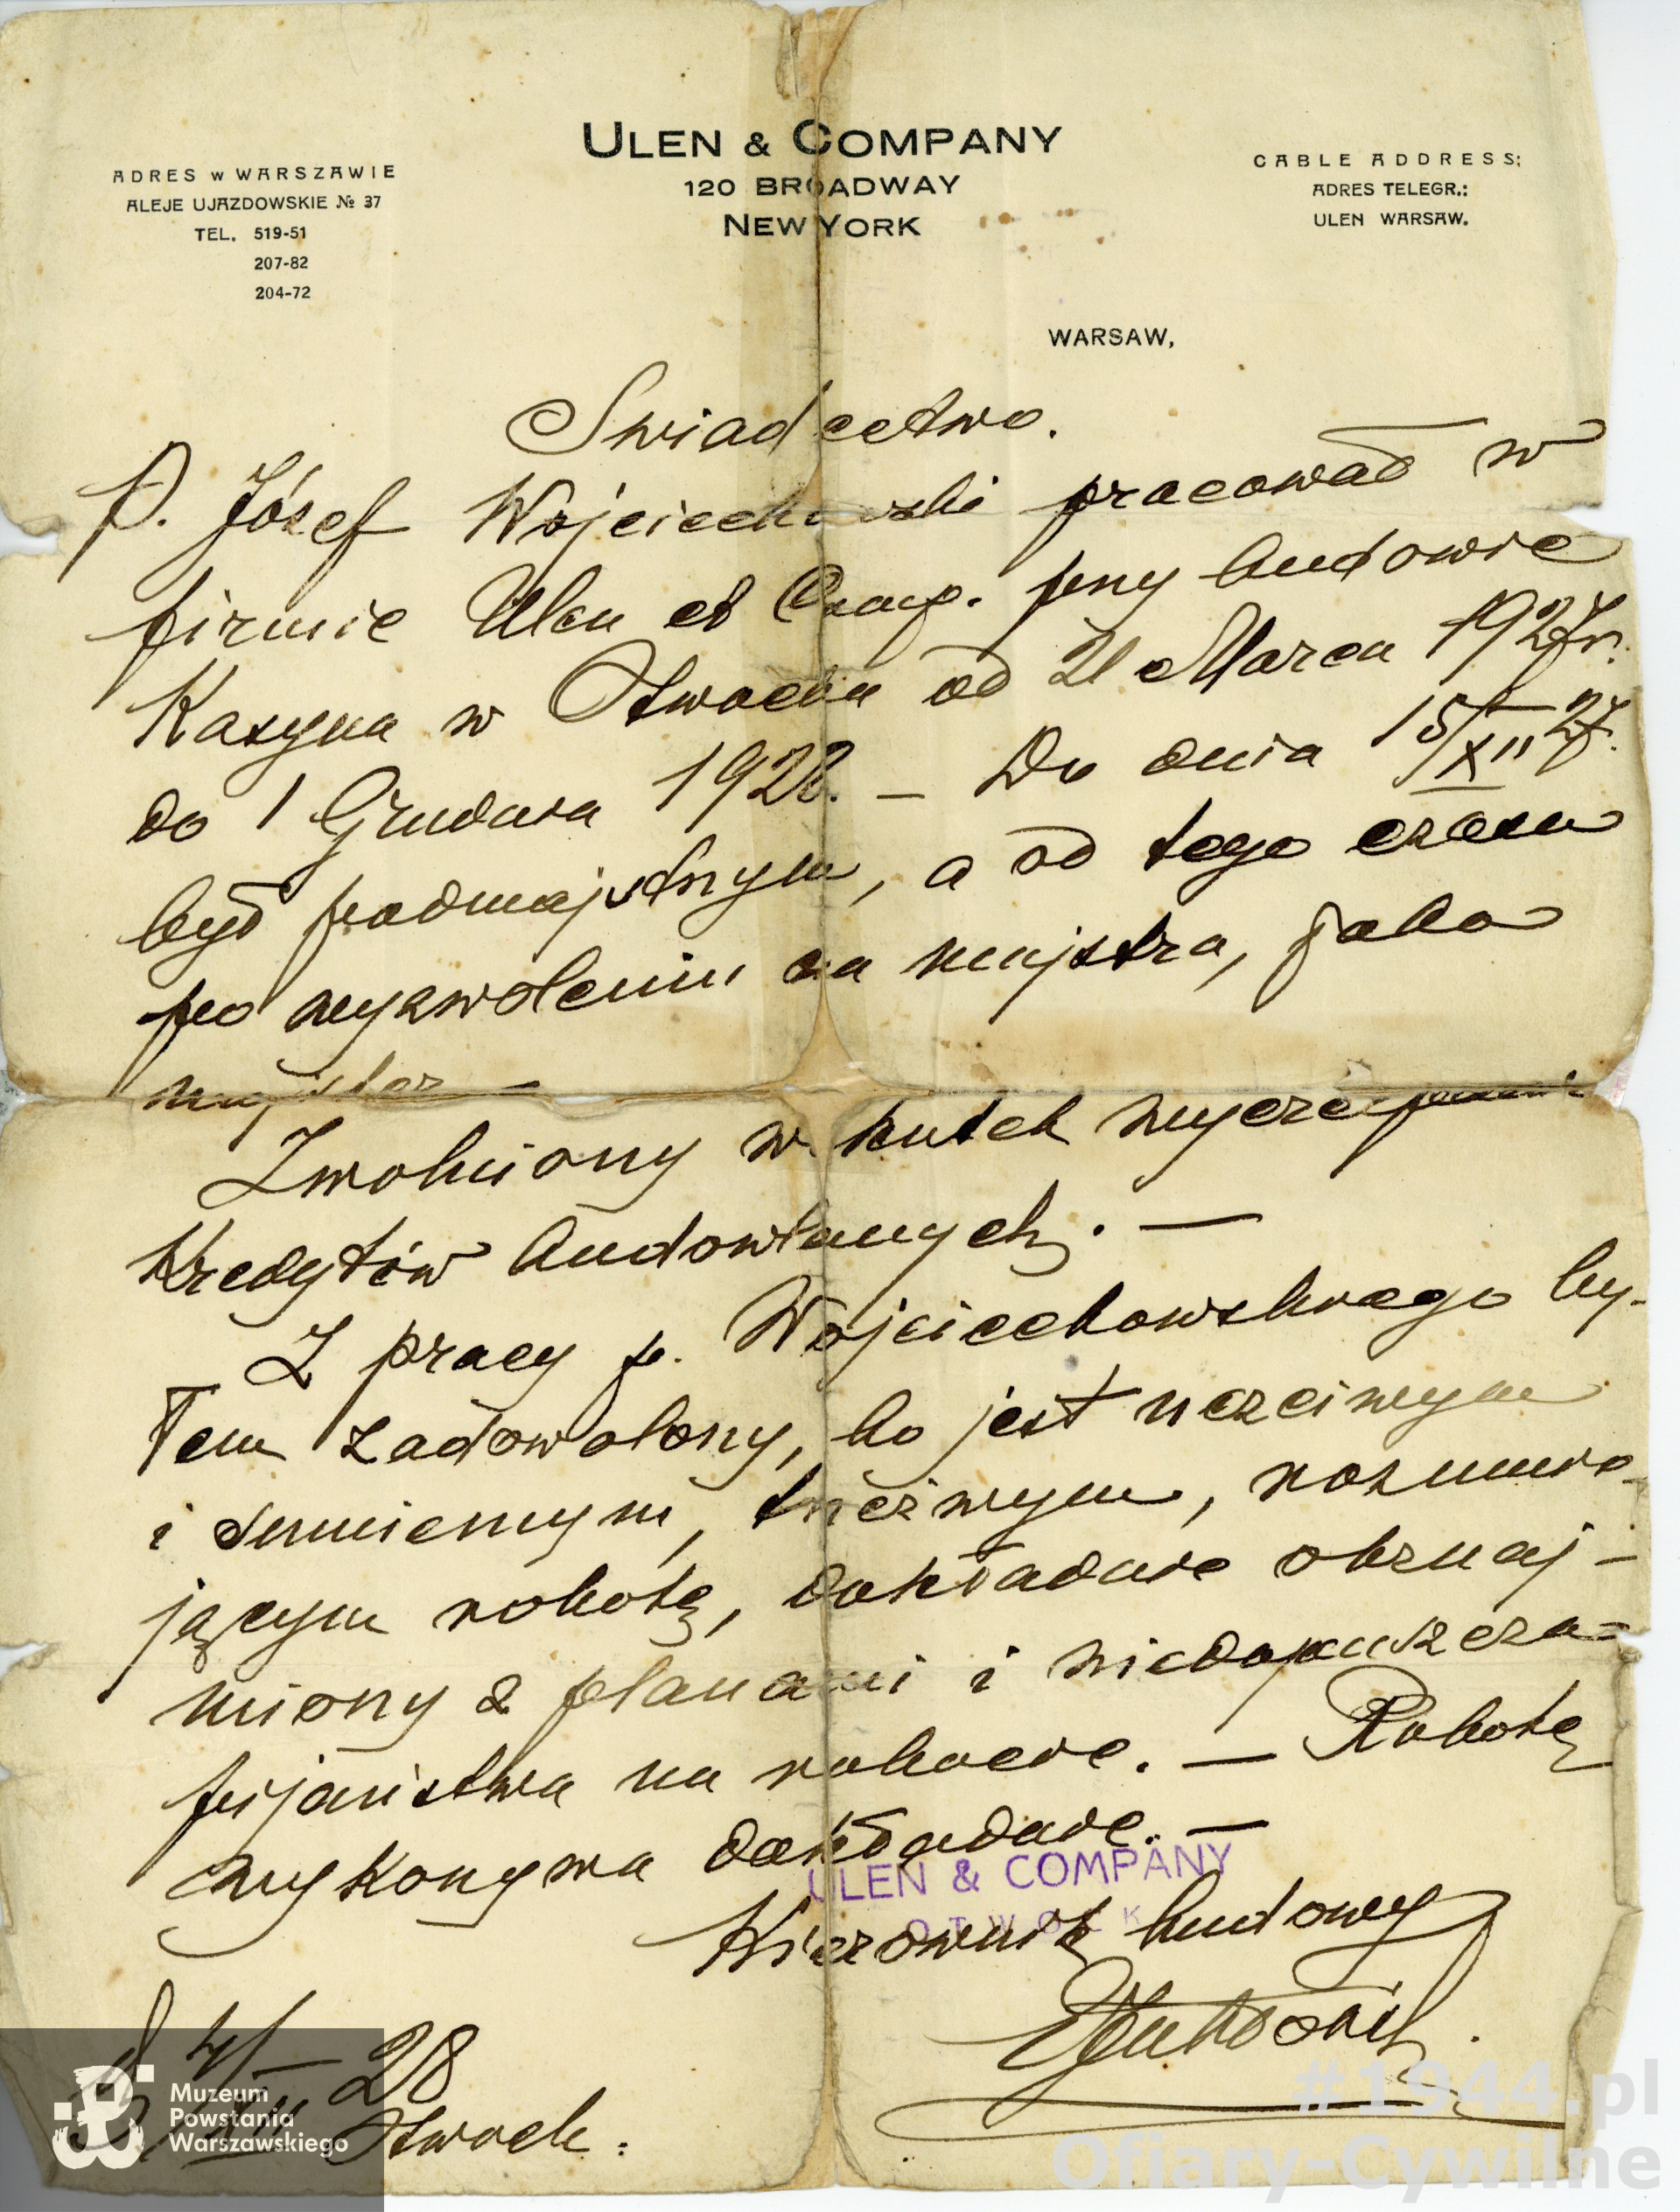 ULEN & COMPANY
120 BROADWAY
NEW YORK
ADRES w WARSZAWIE
ALEJE UJAZDOWSKIE № 37
TEL. 519-51
207-82
204-72
CABLE ADDRESS:
ADRES TELEGR.:
ULEN WARSAW.
WARSAW,
Swiadectwo.
P. Józef Wojciechowski pracował w
firmie Ulen et Comp. przy budowie
Kasyna w Otwocku od 21 Marca 1927r.
do 1 Grudnia 1928. — Do dnia 15/XII 27.
był podmajstrzym, a od tego czasu
po wyzwoleniu na majstra, jako
majster —
Zwolniony w skutek wyczerpania
Kredytów budowlanych. —
Z pracy p. Wojciechowskiego by-
łem zadowolony, bo jest uczciwym
i sumiennym, trzeźwym, rozumie-
jącym robotę, dokładnie obznaj-
miony z planami i niedopuszcza-
pijaństwa na robocie. — Robotę
wykonywa dokładnie. —
ULEN & COMPANY
OTWOCK
Kierownik budowy
4/XII — 28
Otwock.
Muzeum
Powstania
Warszawskiego
#1944.pl
Ofiary-Cywilne